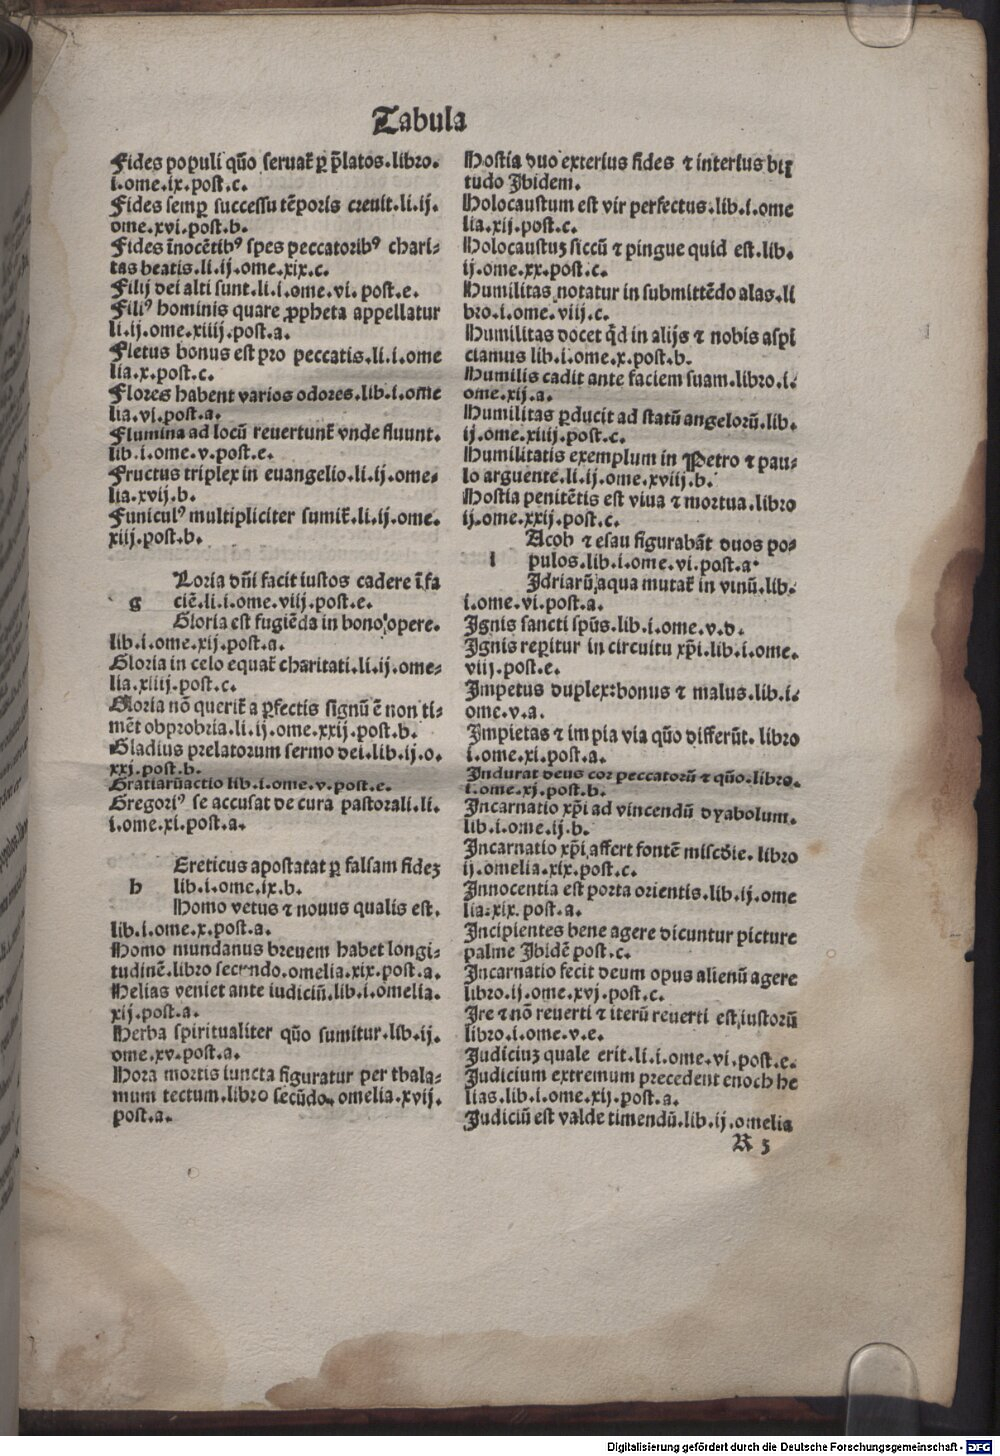 Tabula
Fides populi quõ seruat̃ ꝑ p̃latos.libro.
i.ome.ix.post.c.
Fides semꝑ successu tẽporis creuit.li.ij.
ome.xvi.post.b.
Fides ĩnocẽtibꝰ spes peccatoribꝰ chari-
tas beatis.li.ij.ome.xix.c.
Filij dei alti sunt.li.i.ome.vi.post.e.
Filiꝰ hominis quare ꝓpheta appellatur
li.ij.ome.xiiij.post.a.
Fletus bonus est pro peccatis.li.i.ome
lia.x.post.c.
Flores habent varios odores.lib.i.ome
lia.vi.post.a.
Flumina ad locũ reuertunt̃ vnde fluunt.
lib.i.ome.v.post.e.
Fructus triplex in euangelio.li.ij.ome-
lia.xvij.b.
Funiculꝰ multipliciter sumit̃.li.ij.ome.
xiij.post.b.
Loria dñi facit iustos cadere ĩ fa
g ciẽ.li.i.ome.viij.post.e.
Gloria est fugiẽda in bono opere.
lib.i.ome.xij.post.a.
Gloria in celo equat̃ charitati.li.ij.ome-
lia.xiiij.post.c.
Gloria nõ querit̃ a ꝑfectis signũ ẽ non ti-
mẽt obprobria.li.ij.ome.xxij.post.b.
Gladius prelatorum sermo dei.lib.ij.o.
xxj.post.b.
Gratiarũactio lib.i.ome.v.post.e.
Gregoriꝰ se accusat de cura pastorali.li.
i.ome.xi.post.a.
Ereticus apostatat ꝑ falsam fideꝫ
h lib.i.ome.ix.b.
Homo vetus ⁊ nouus qualis est.
lib.i.ome.x.post.a.
Homo mundanus breuem habet longi-
tudinẽ.libro secundo.omelia.xix.post.a.
Helias veniet ante iudiciũ.lib.i.omelia.
xij.post.a.
Herba spiritualiter quõ sumitur.lib.ij.
ome.xv.post.a.
Hora mortis iuncta figuratur per thala-
mum tectum.libro secũdo.omelia.xvij.
post.a.
Hostia duo exterius fides ⁊ interius
tudo Ibidem.
Holocaustum est vir perfectus.lib.i.ome
lia.xij.post.c.
Holocaustuꝫ siccũ ⁊ pingue quid est.lib.
ij.ome.xx.post.c.
Humilitas notatur in submittẽdo alas.li
bro.i.ome.viij.c.
Humilitas docet q̃d in alijs ⁊ nobis aspi
ciamus lib.i.ome.x.post.b.
Humilis cadit ante faciem suam.libro.i.
ome.xij.a.
Humilitas ꝑducit ad statũ angelorũ.lib.
ij.ome.xiiij.post.c.
Humilitatis exemplum in Petro ⁊ pau-
lo arguente.li.ij.ome.xviij.b.
Hostia penitẽtis est viua ⁊ mortua.libro
ij.ome.xxij.post.c.
Acob ⁊ esau figurabãt duos po-
i pulos.lib.i.ome.vi.post.a.
Idriarũ aqua mutat̃ in vinũ.lib.
i.ome.vi.post.a.
Ignis sancti spũs.lib.i.ome.v.d.
Ignis reꝑitur in circuitu xp̃i.lib.i.ome.
viij.post.e.
Impetus duplex:bonus ⁊ malus.lib.i.
ome.v.a.
Impietas ⁊ impia via quõ differũt.libro
i.ome.xi.post.a.
Indurat deus cor peccatorũ ⁊ quõ.libro.
i.ome.xj.post.b.
Incarnatio xp̃i ad vincendũ dyabolum.
lib.i.ome.ij.b.
Incarnatio xp̃i affert fontẽ miscd̃ie.libro
ij.omelia.xix.post.c.
Innocentia est porta orientis.lib.ij.ome
lia.xix.post.a.
Incipientes bene agere dicuntur picture
palme Ibidẽ post.c.
Incarnatio fecit deum opus alienũ agere
libro.ij.ome.xvj.post.c.
Ire ⁊ nõ reuerti ⁊ iterũ reuerti est iustorũ
libro.i.ome.v.e.
Iudiciuꝫ quale erit.li.i.ome.vi.post.e.
Iudicium extremum precedent enoch he
lias.lib.i.ome.xij.post.a.
Iudiciũ est valde timendũ.lib.ij.omelia
R 5
Digitalisierung gefördert durch die Deutsche Forschungsgemeinschaft - DFG